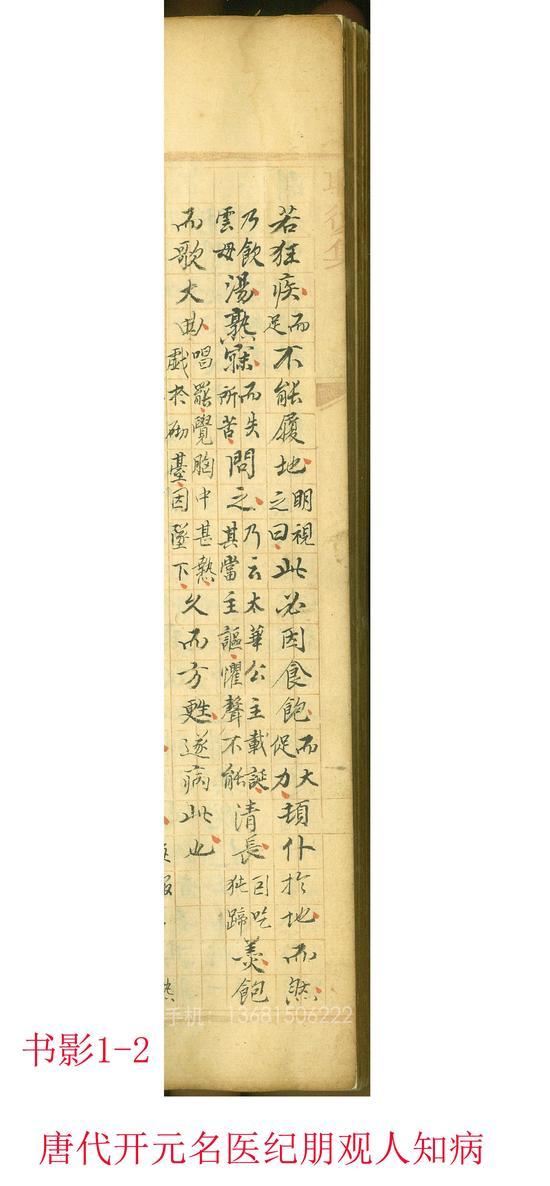 若狂疾而足不能履地明視之曰此必因食飽而大促力頓仆於地而然
乃飲雲母湯熟寐而失所苦問之乃云太華公主載誕其當主謳懼聲不能清長因吃㹠蹄羹飽
而歌大曲唱罷覺胸中甚熱戲於砌臺因墜下久而方甦遂病此也
手机：13681506222
书影1-2
唐代开元名医纪朋观人知病